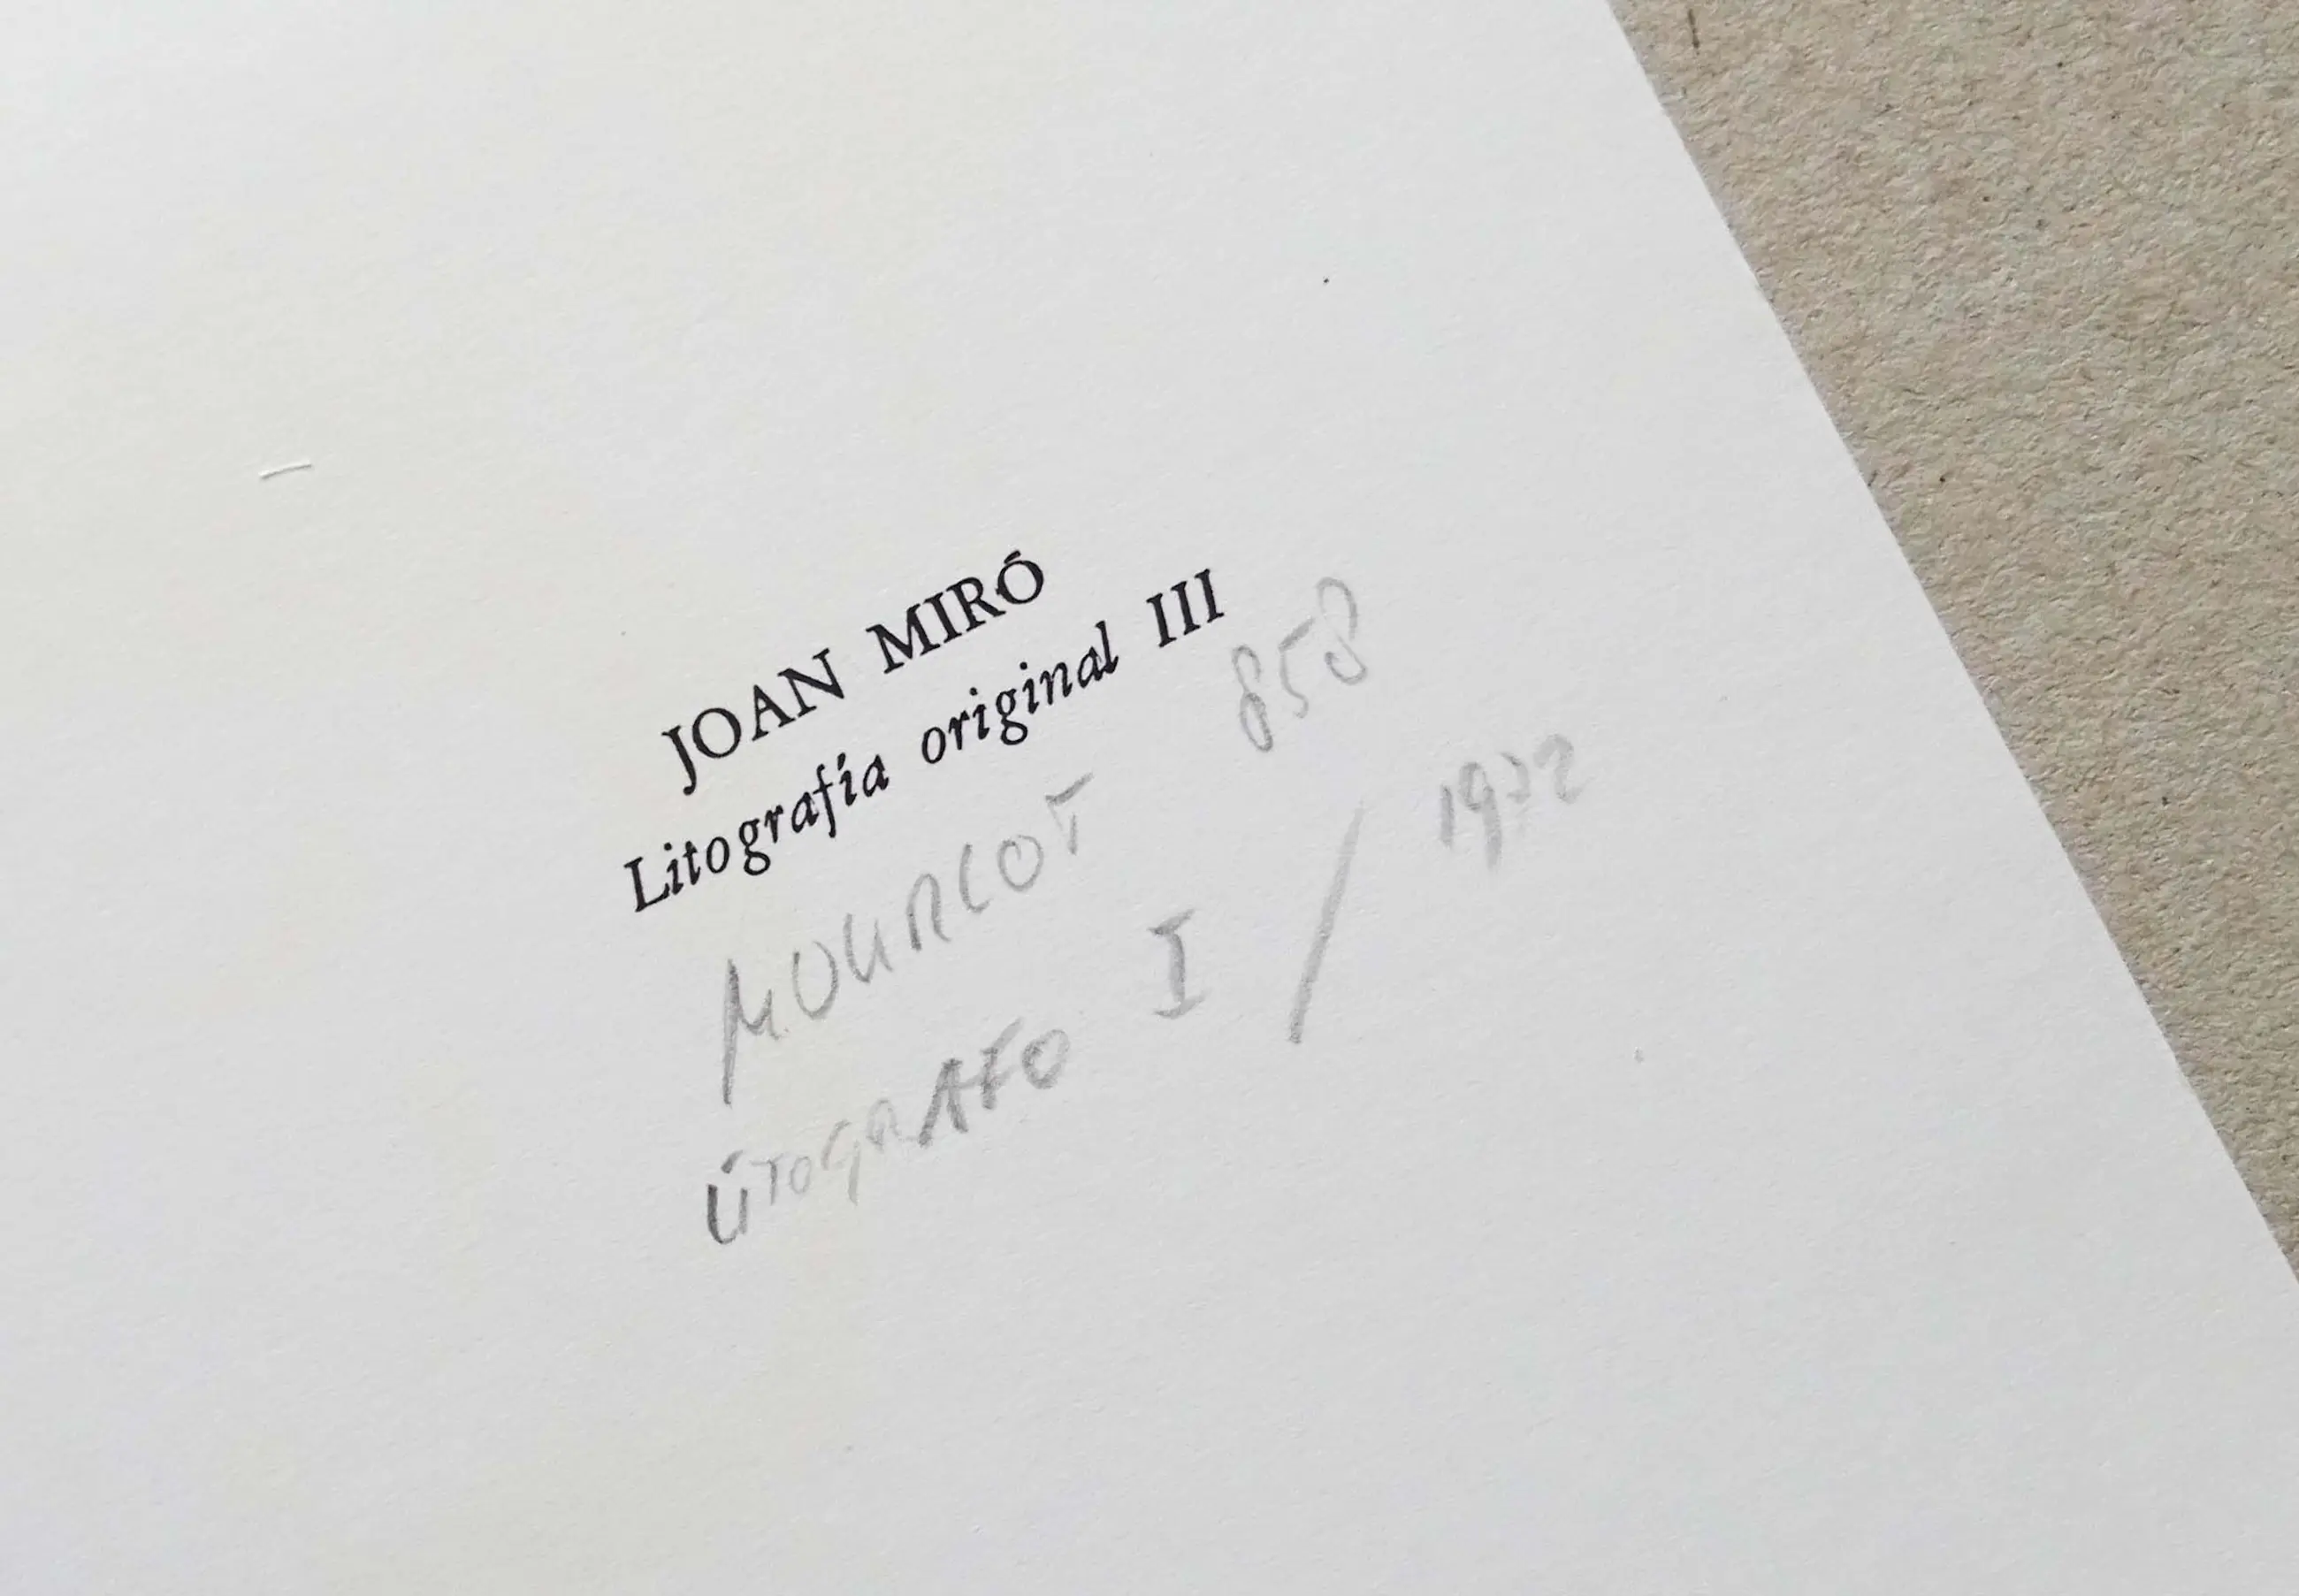 JOAN MIRÓ
Litografía original III
MOURLOT 858
LITOGRAFO I / 1972